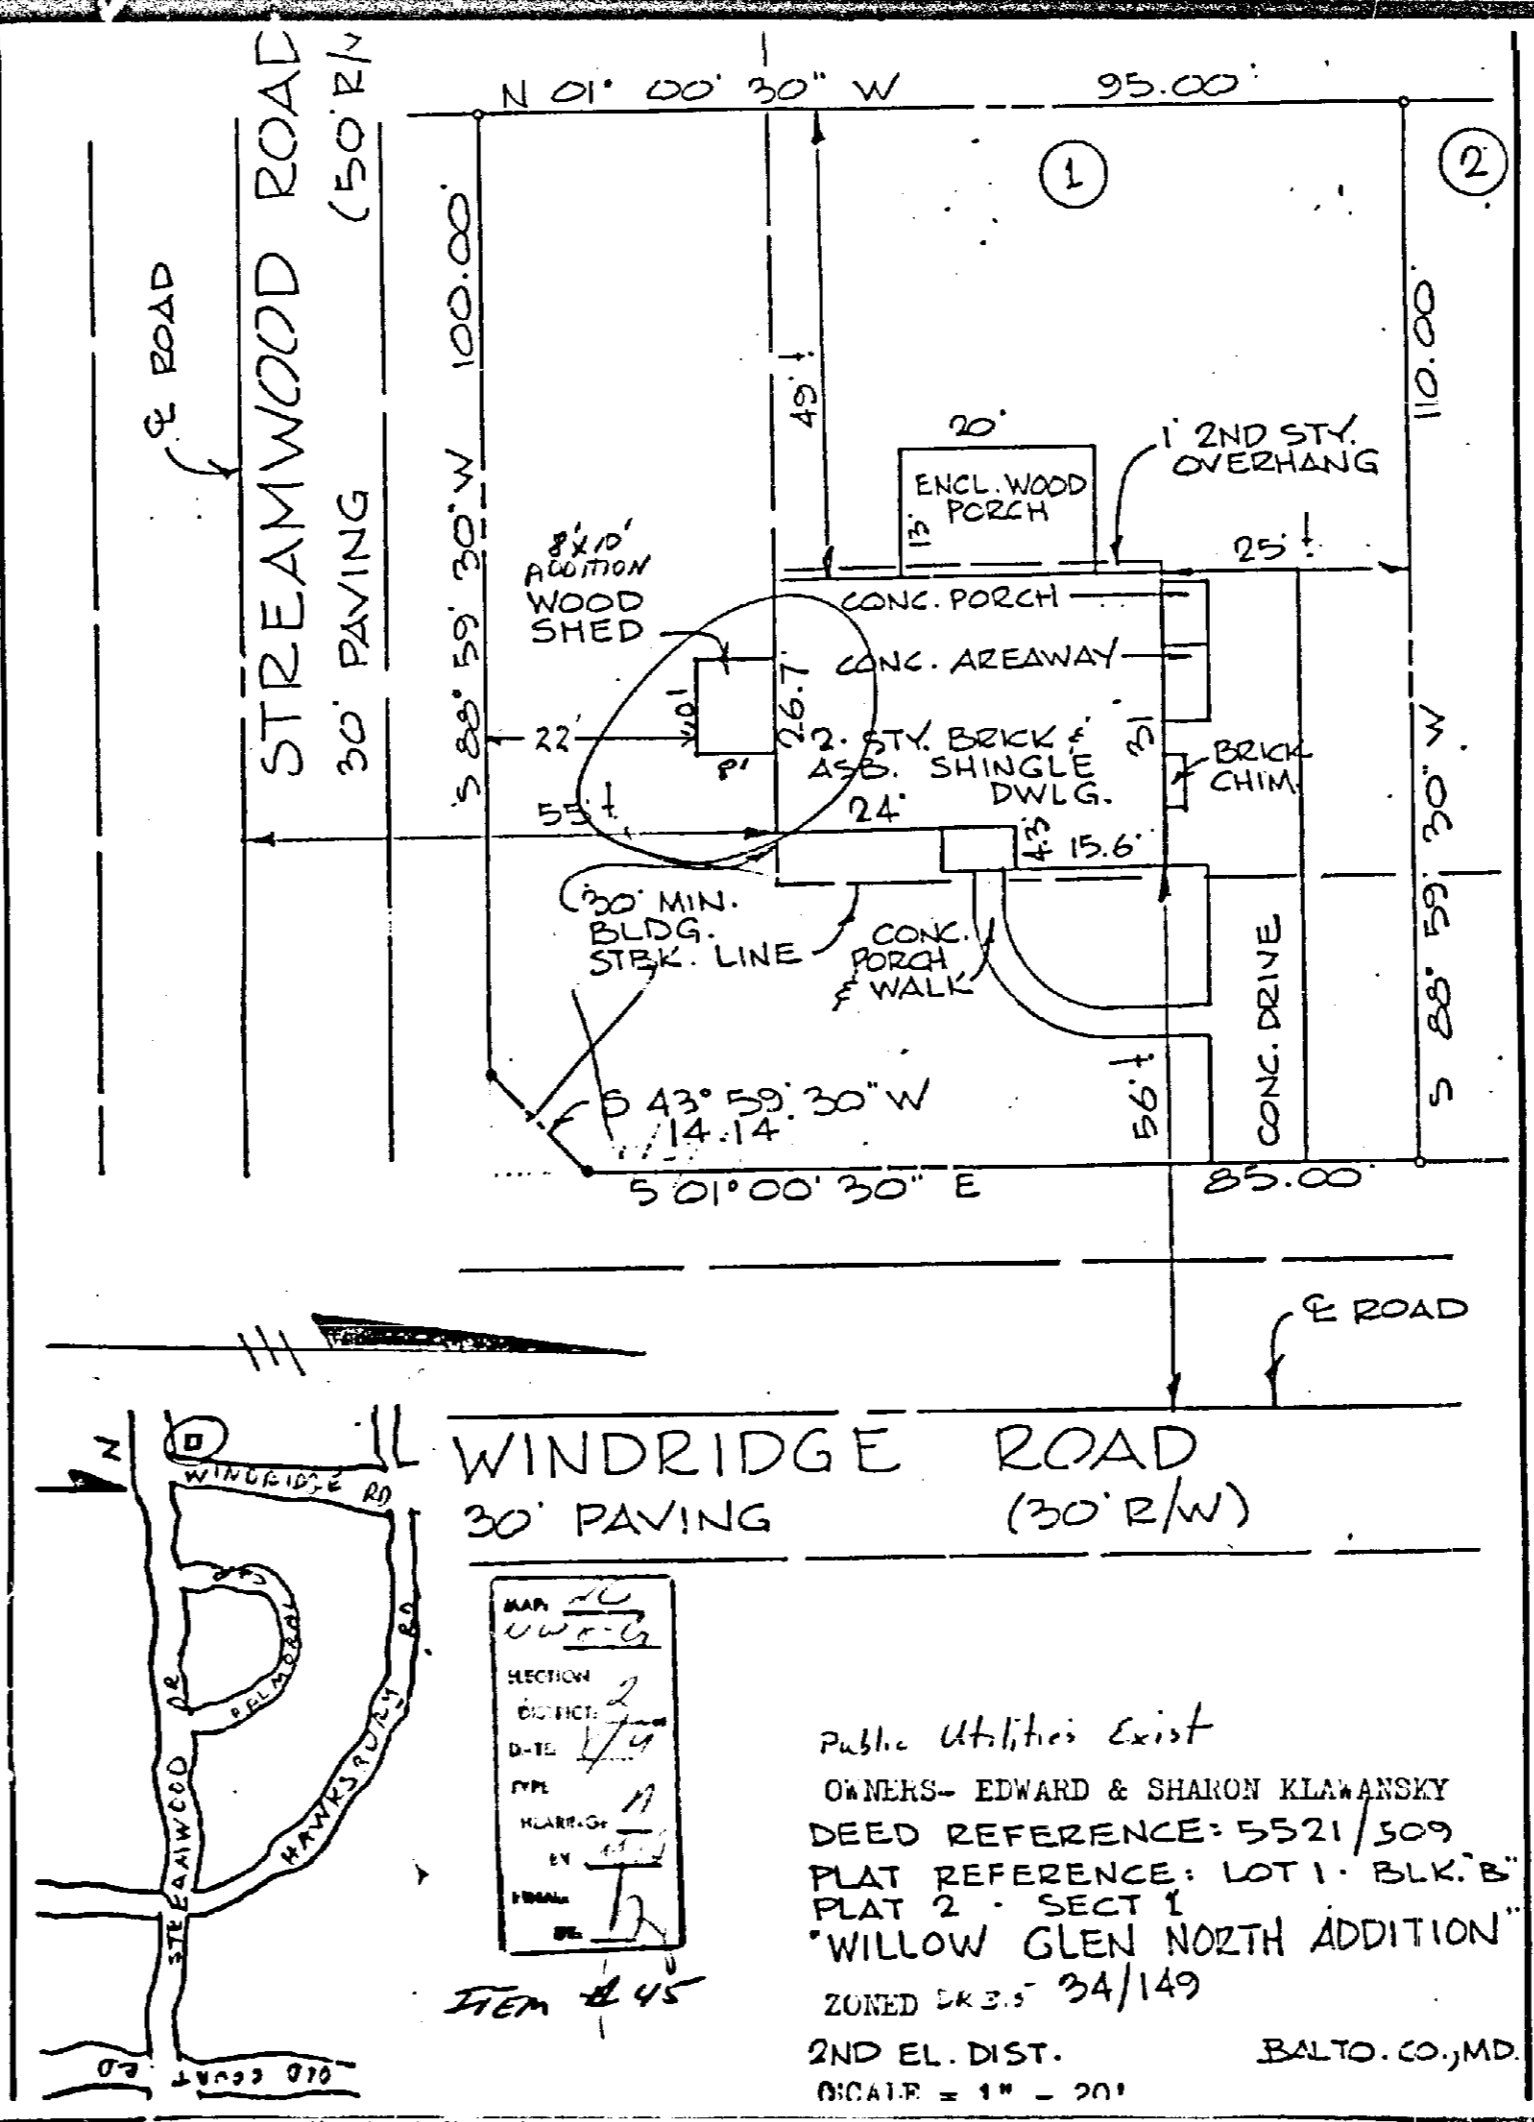 N 01° 00' 30" W 95.00'
STREAMWOOD ROAD
30' PAVING (50' R/W
℄ ROAD
S 88° 59' 30" W 100.00'
1
2
110.00'
S 88° 59' 30" W
49' ±
20'
ENCL. WOOD
PORCH
13'
1' 2ND STY.
OVERHANG
25' ±
8'x10'
ADDITION
WOOD
SHED
CONC. PORCH
CONC. AREAWAY
10'
8'
22'
26.7'
31'
2. STY. BRICK &
ASB. SHINGLE
DWLG.
BRICK
CHIM.
55' ±
24'
4.3'
15.6'
30' MIN.
BLDG.
STBK. LINE
CONC.
PORCH
& WALK
CONC. DRIVE
56' ±
S 43° 59' 30" W
14.14'
S 01° 00' 30" E 85.00'
℄ ROAD
WINDRIDGE ROAD
30' PAVING (30' R/W)
N
WINDRIDGE RD
BALMORAL
HAWKSBURY RD
STREAMWOOD DR
OLD COURT RD
MAP
ELECTION
DISTRICT 2
DATE
TYPE
HEARING
BY
Public Utilities Exist
OWNERS- EDWARD & SHARON KLAWANSKY
DEED REFERENCE: 5521/509
PLAT REFERENCE: LOT 1 · BLK. "B"
PLAT 2 · SECT 1
"WILLOW GLEN NORTH ADDITION"
ZONED DR 3.5 34/149
ITEM # 45
2ND EL. DIST. BALTO. CO., MD.
SCALE = 1" - 20'